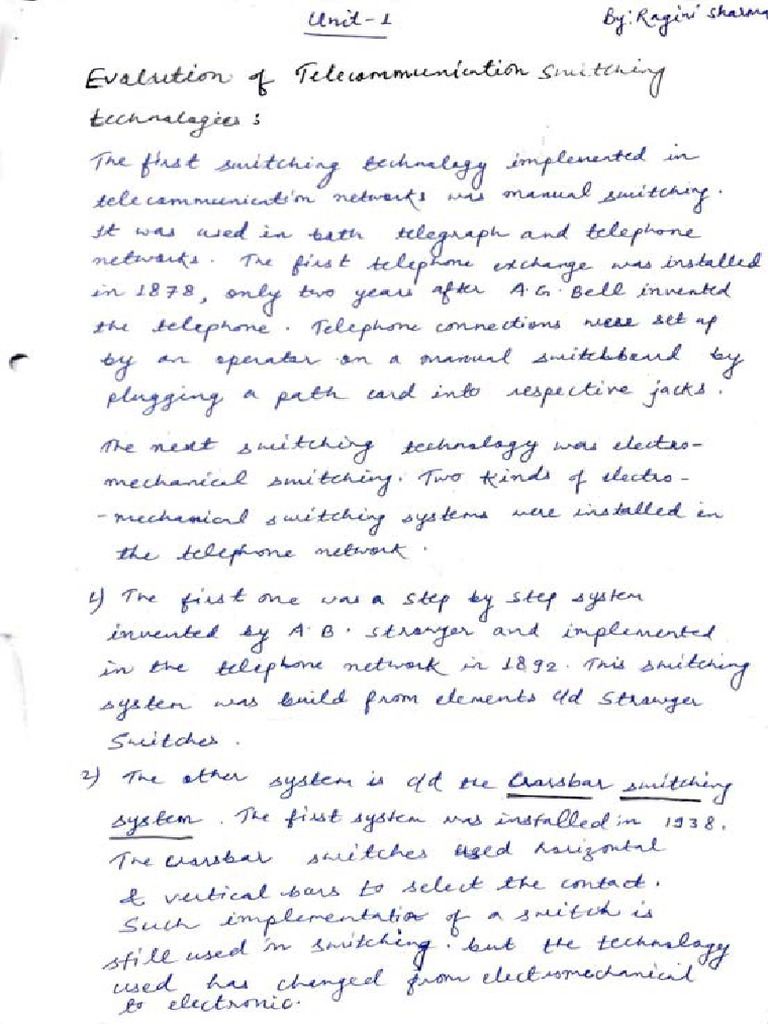 Unit-1
By: Ragini Sharma
Evalution of Telecommunication Switching
technologies :
The first switching technology implemented in
telecommunication networks was manual switching.
It was used in both telegraph and telephone
networks. The first telephone exchange was installed
in 1878, only two years after A.G. Bell invented
the telephone. Telephone connections were set up
by an operator on a manual switchboard by
plugging a path cord into respective jacks.
The next switching technology was electro-
mechanical switching. Two kinds of electro-
-mechanical switching systems were installed in
the telephone network.
1) The first one was a step by step system
invented by A.B. Strowger and implemented
in the telephone network in 1892. This switching
system was build from elements c/d Strowger
Switches.
2) The other system is c/d the Crossbar switching
system. The first system was installed in 1938.
The crossbar switches used horizontal
& vertical bars to select the contact.
Such implementation of a switch is
still used in switching. but the technology
used has changed from electromechanical
to electronic.